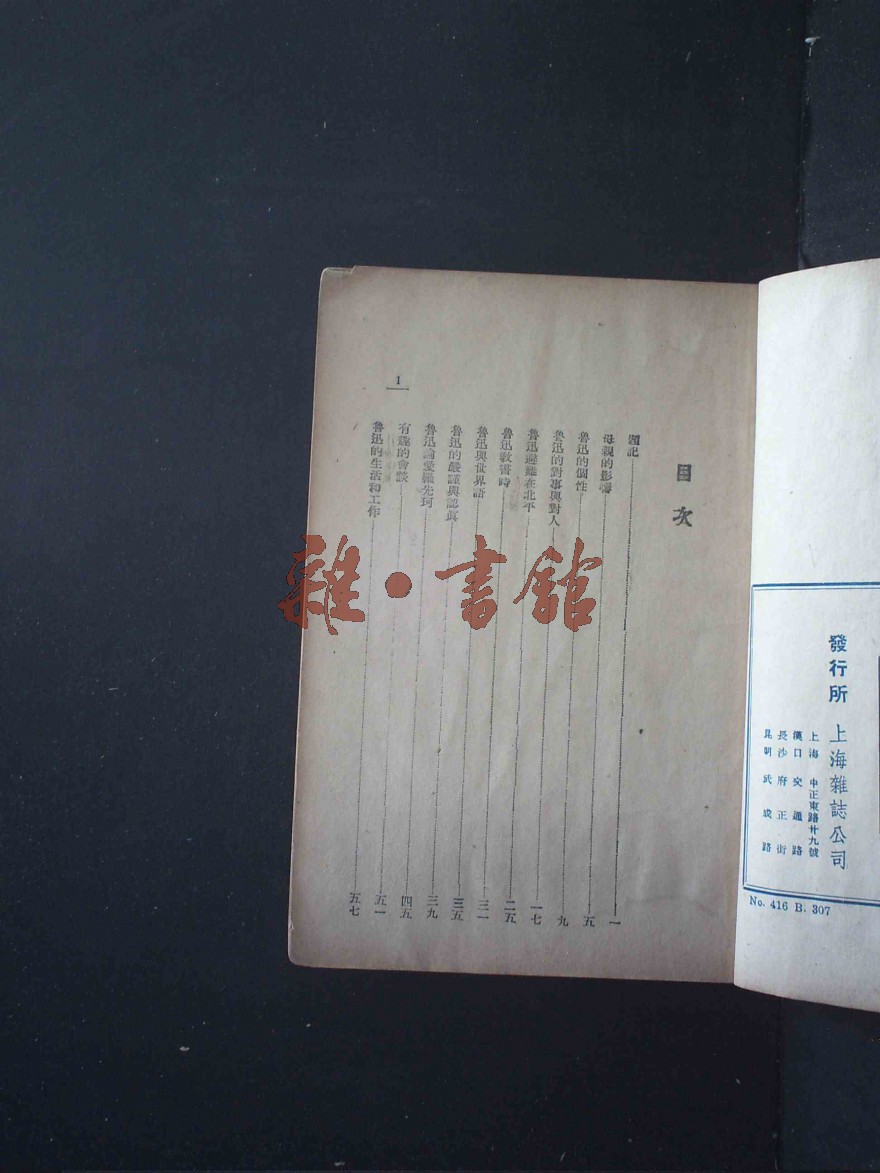 發行所
上海雜誌公司
上海 中正東路卅九號
漢口交通路
長沙府正街
昆明武成路
No. 416 B. 307
目次
題記 一
母親的影響 五
魯迅的個性 九
魯迅的對事與對人 一七
魯迅避難在北平 二五
魯迅教書時 三一
魯迅與世界語 三五
魯迅的嚴謹與認眞 三九
魯迅論愛羅先珂 四五
有趣的會談 五一
魯迅的生活和工作 五七
1
雜·書館